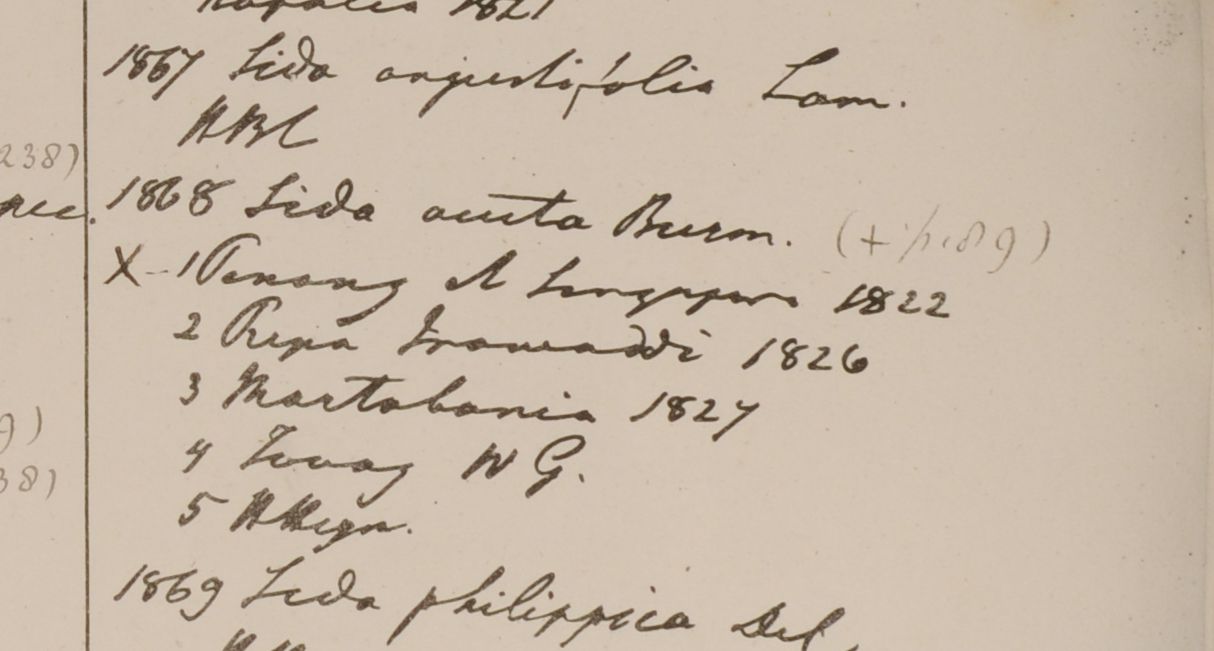 Napalia 1821
1867 Sida angustifolia Lam.
HBC
238)
1868 Sida acuta Burm.
X - 1 Penang et Singapore 1822
2 Ripa Irawaddi 1826
3 Martabania 1827
4 Tavoy W G.
5 H Heyn.
1869 Sida philippica Del